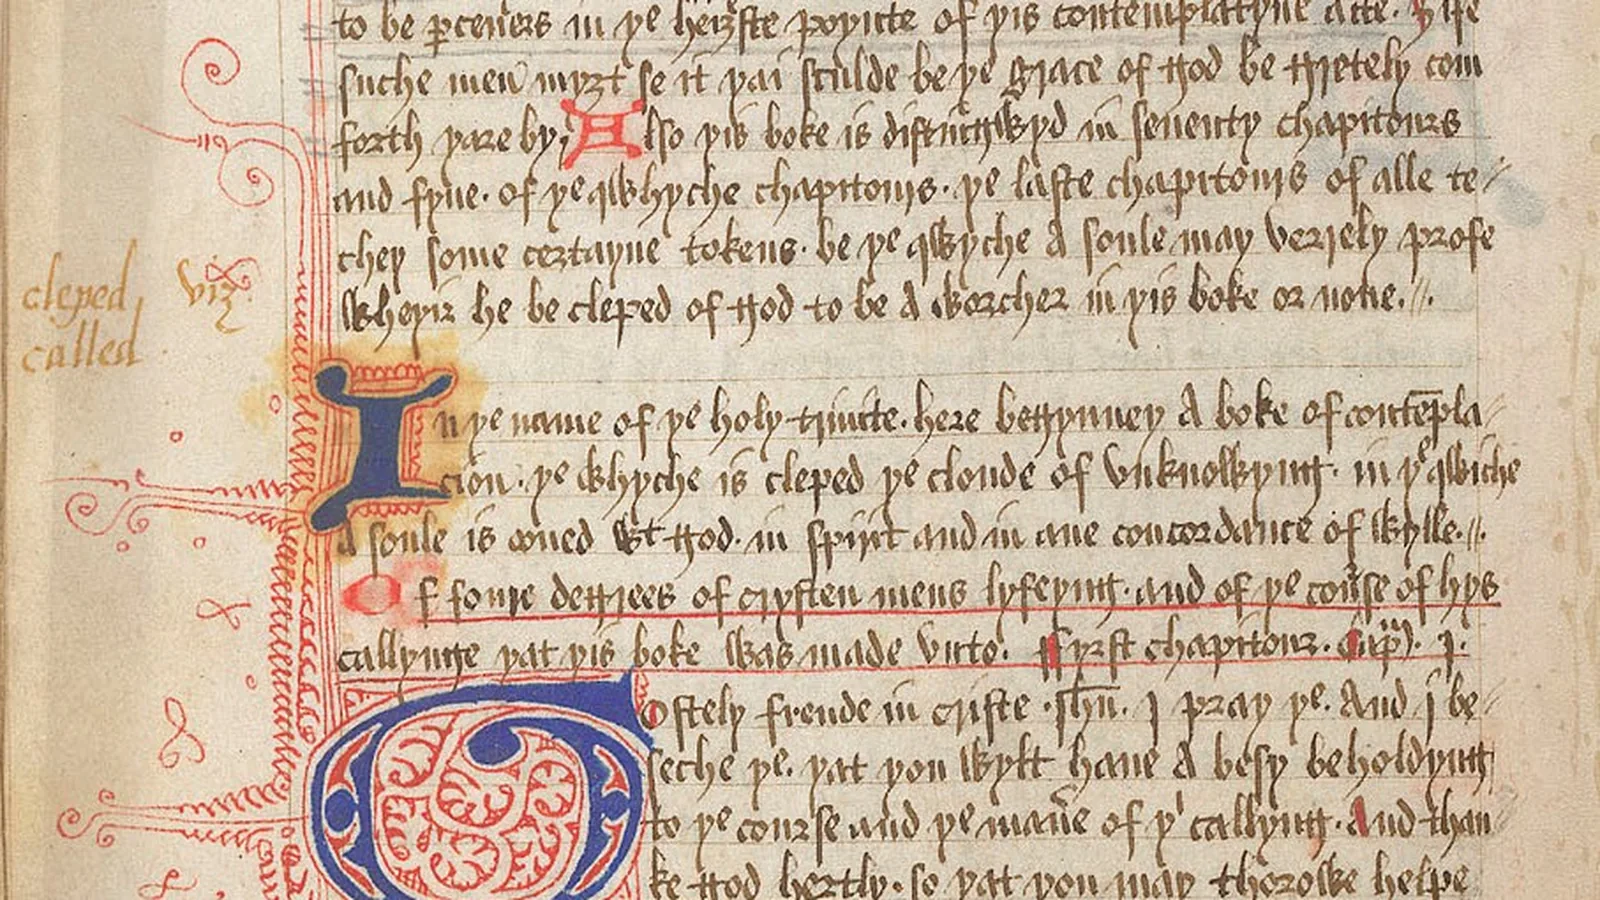 to be p̲ceners in þe heiȝste poyncte of þis contemplatyue acte. ȝife
suche men myȝt se it þai sculde be þe grace of god be gretely com
forth þare by. Also þis boke is distingwyd in seuenty chapitours
and fyue. of þe qwhyche chapitours. þe laste chapitours of alle te⸗
chey some certayne tokens. be þe qwyche A soule may verrely profe
wheþir he be cleped of god to be A worcher in þis boke or none.
cleped, viz
called
In þe name of þe holy trinite. here begynney A boke of contēpla⸗
cion. þe whyche is cleped þe cloude of vnknowyng. in þe qwiche
A soule is oned wt god. in spirit and in ane concordance of wylle.
Of foure degrees of crysten mens lyfeyng. and of þe course of hys
callynge þat þis boke was made vnto. ffyrst chapitour. Cap̄m. j.
Gostely frende in criste Ihū. I pray þe. And I be⸗
seche þe. þat þou wylt haue A besy beholdyng
to þe course and þe manēe of þi callyng. And than
ke god hertly. so þat þou may thorowe helpe